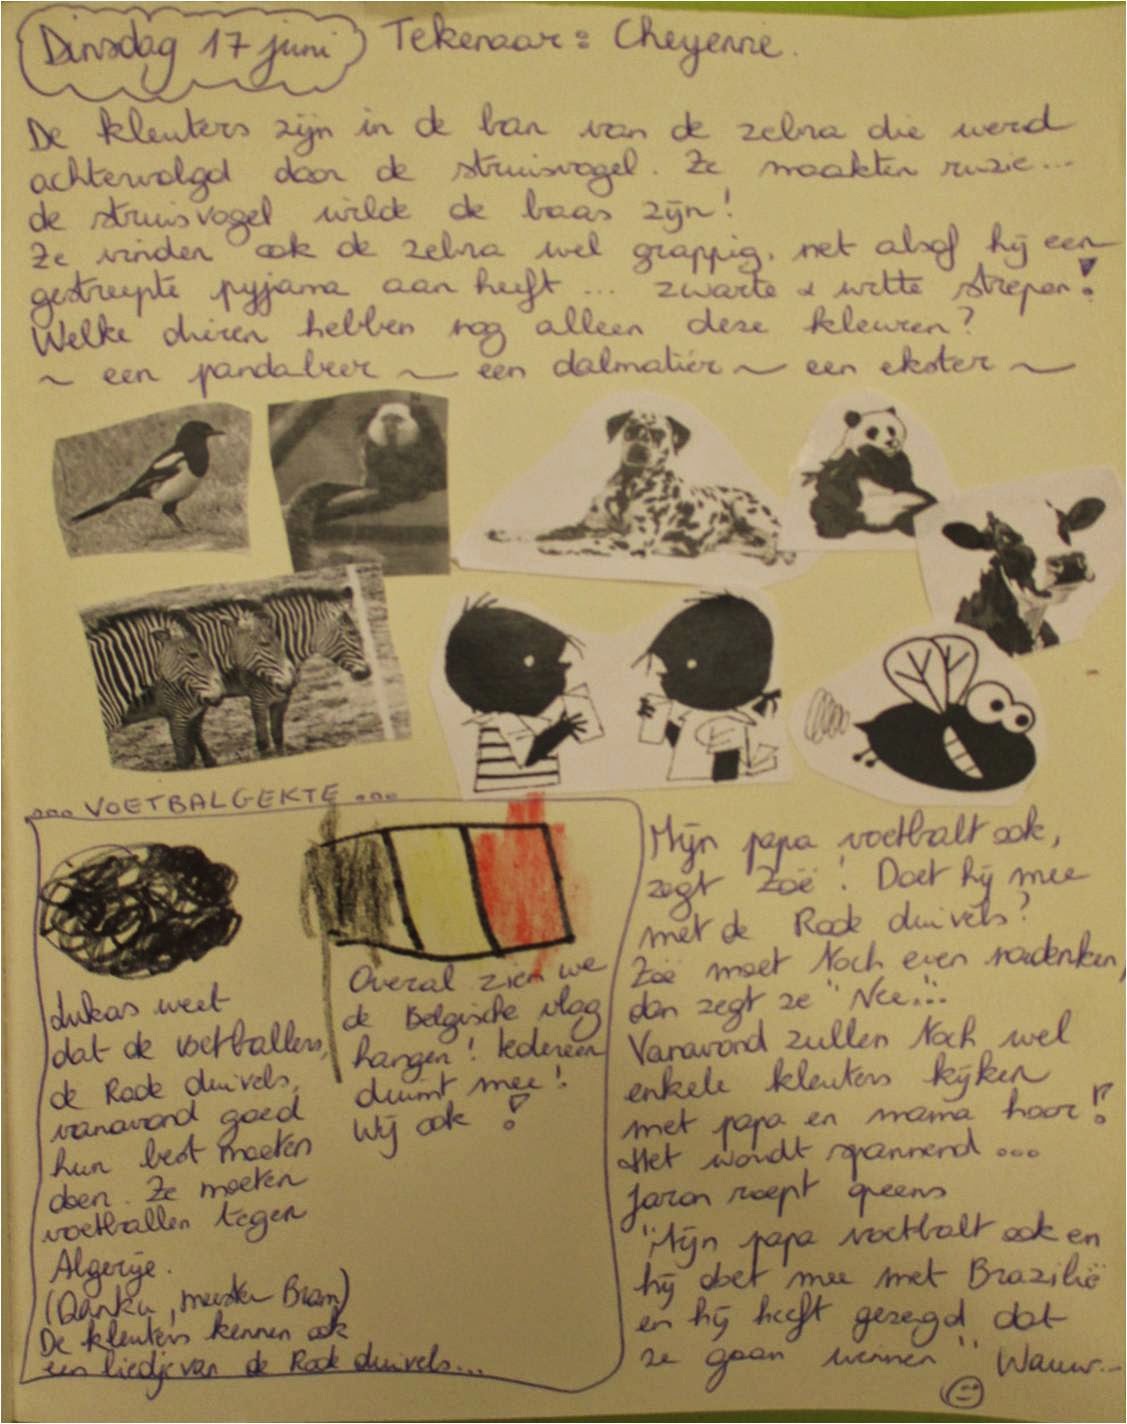 Dinsdag 17 juni Tekenaar: Cheyenne.
De kleuters zijn in de ban van de zebra die werd
achtervolgd door de struisvogel. Ze maakten ruzie...
de struisvogel wilde de baas zijn!
Ze vinden ook de zebra wel grappig, net alsof hij een
gestreepte pyjama aan heeft ... zwarte & witte strepen!
Welke dieren hebben nog alleen deze kleuren?
~ een pandabeer ~ een dalmatiër ~ een ekster ~
... VOETBALGEKTE ...
Lukas weet
dat de voetballers,
de Rode duivels,
vanavond goed
hun best moeten
doen. Ze moeten
voetballen tegen
Algerije.
(Danku, meester Bram)
De kleuters kennen ook
een liedje van de Rode duivels...
Overal zien we
de Belgische vlag
hangen! Iedereen
duimt mee!
Wij ook!
Mijn papa voetbalt ook,
zegt Zoë! Doet hij mee
met de Rode duivels?
Zoë moet Noch even nadenken,
dan zegt ze "Nee..."
Vanavond zullen Noch wel
enkele kleuters kijken
met papa en mama hoor!
Het wordt spannend...
Jaron roept opeens
"Mijn papa voetbalt ook en
hij doet mee met Brazilië
en hij heeft gezegd dat
ze gaan winnen" Wauw...